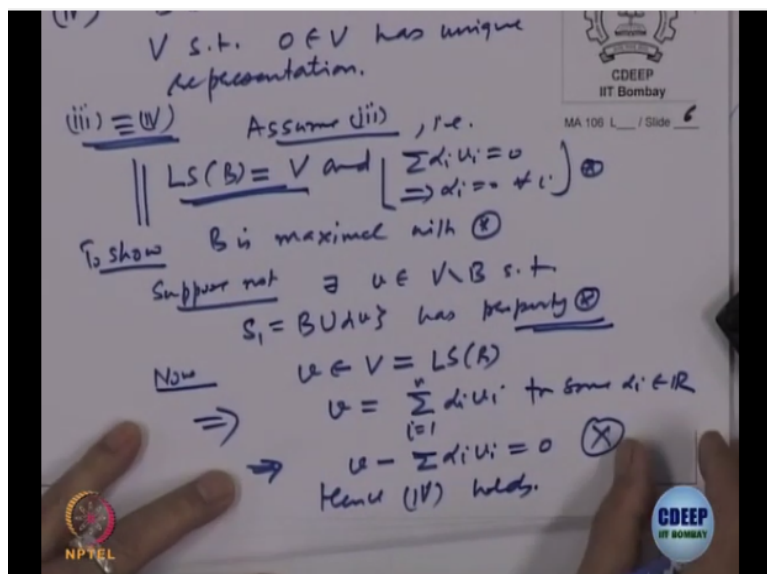 (iv)
V s.t. 0 ∈ V has unique
representation.
CDEEP
IIT Bombay
MA 106 L__ / Slide 6
(iii) ≡ (iv) Assume (iii), i.e.
LS(B) = V and [ Σ αi vi = 0
⇒ αi = 0 ∀ i ] ⊛
To show B is maximal with ⊛
Suppose not ∃ v ∈ V \ B s.t.
S₁ = B ∪ {v} has property ⊛
Now v ∈ V = LS(B)
⇒ v = Σ_{i=1}^{n} αi vi for some αi ∈ ℝ
⇒ v − Σ αi vi = 0 ⊗
Hence (iv) holds.
NPTEL
CDEEP
IIT BOMBAY